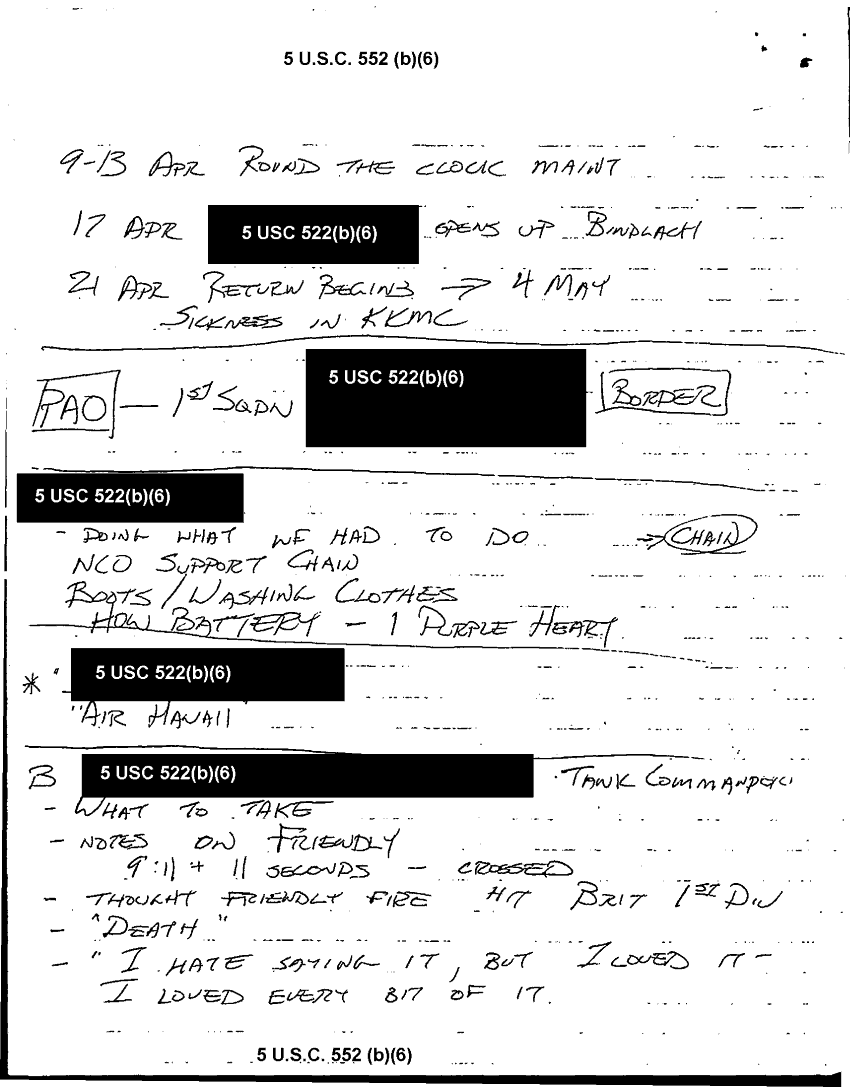 5 U.S.C. 552 (b)(6)
9-13 APR ROUND THE CLOCK MAINT
17 APR 5 USC 522(b)(6) OPENS UP BINDLACH
21 APR RETURN BEGINS → 4 MAY
SICKNESS IN KKMC
PAO — 1ST SQDN 5 USC 522(b)(6) BORDER
5 USC 522(b)(6)
- DOING WHAT WE HAD TO DO → CHAIN
NCO SUPPORT CHAIN
BOOTS / WASHING CLOTHES
HOW BATTERY - 1 PURPLE HEART
* " 5 USC 522(b)(6)
"AIR HAWAII"
B 5 USC 522(b)(6) TANK COMMANDER
- WHAT TO TAKE
- NOTES ON FRIENDLY
9:11 + 11 SECONDS - CROSSED
- THOUGHT FRIENDLY FIRE HIT BRIT 1ST DIV
- "DEATH"
- "I HATE SAYING IT, BUT I LOVED IT -
I LOVED EVERY BIT OF IT.
5 U.S.C. 552 (b)(6)